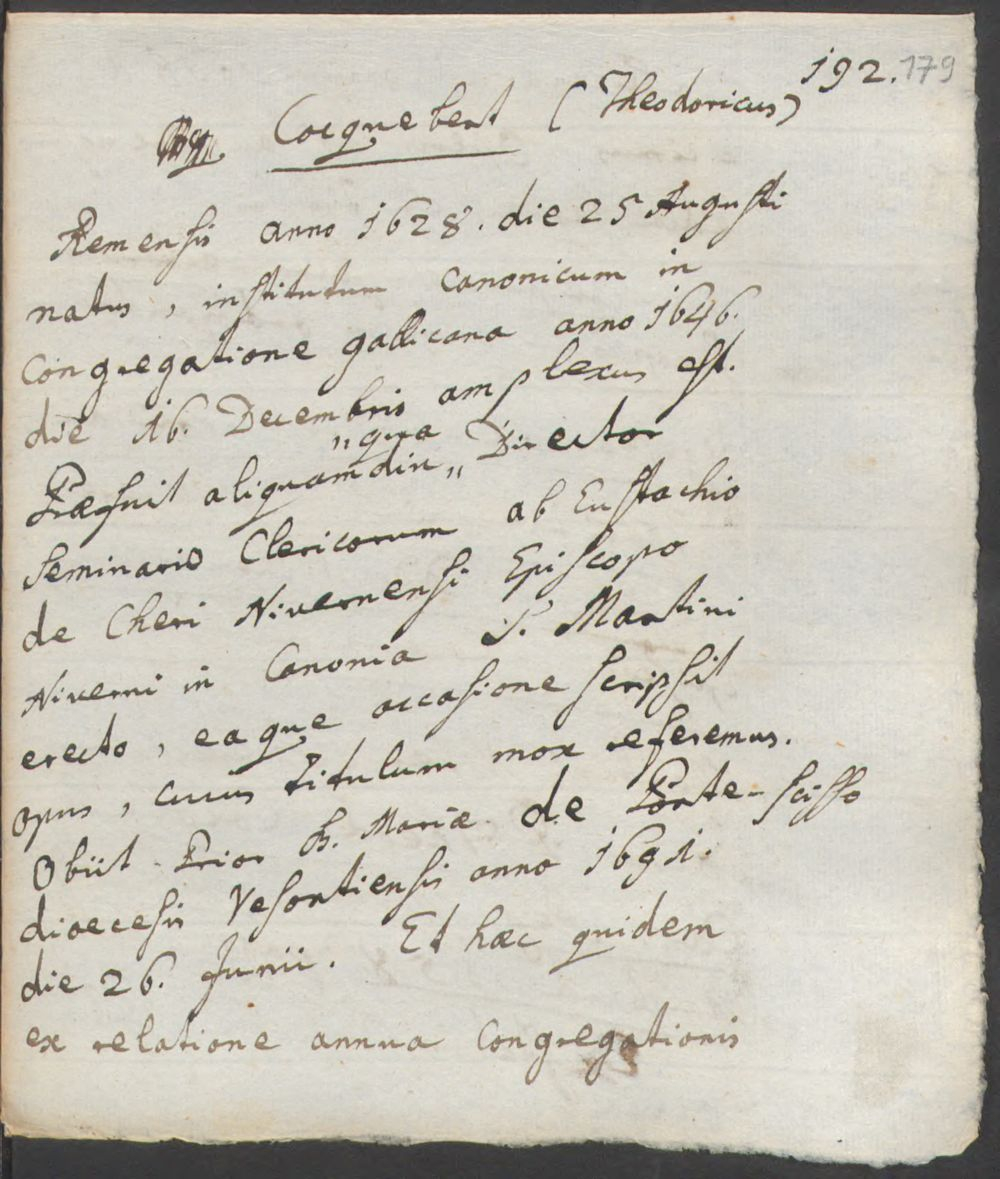 192. 179
Cocquebert (Theodoricus)
Remensis anno 1628. die 25 Augusti
natus, institutum canonicum in
Congregatione gallicana anno 1646.
die 16. Decembris amplexus est.
"qua
Præfuit aliquamdiu " Director
Seminario Clericorum ab Eustachio
de Cheri Nivernensi Episcopo
Niverni in Canonia S. Martini
erecto, eaque occasione scripsit
opus, cuius titulum mox referemus.
Obiit Prior B. Mariæ de Porte-scisso
dioecesis Vesontiensis anno 1691.
die 26. Junii. Et hæc quidem
ex relatione annua Congregationis